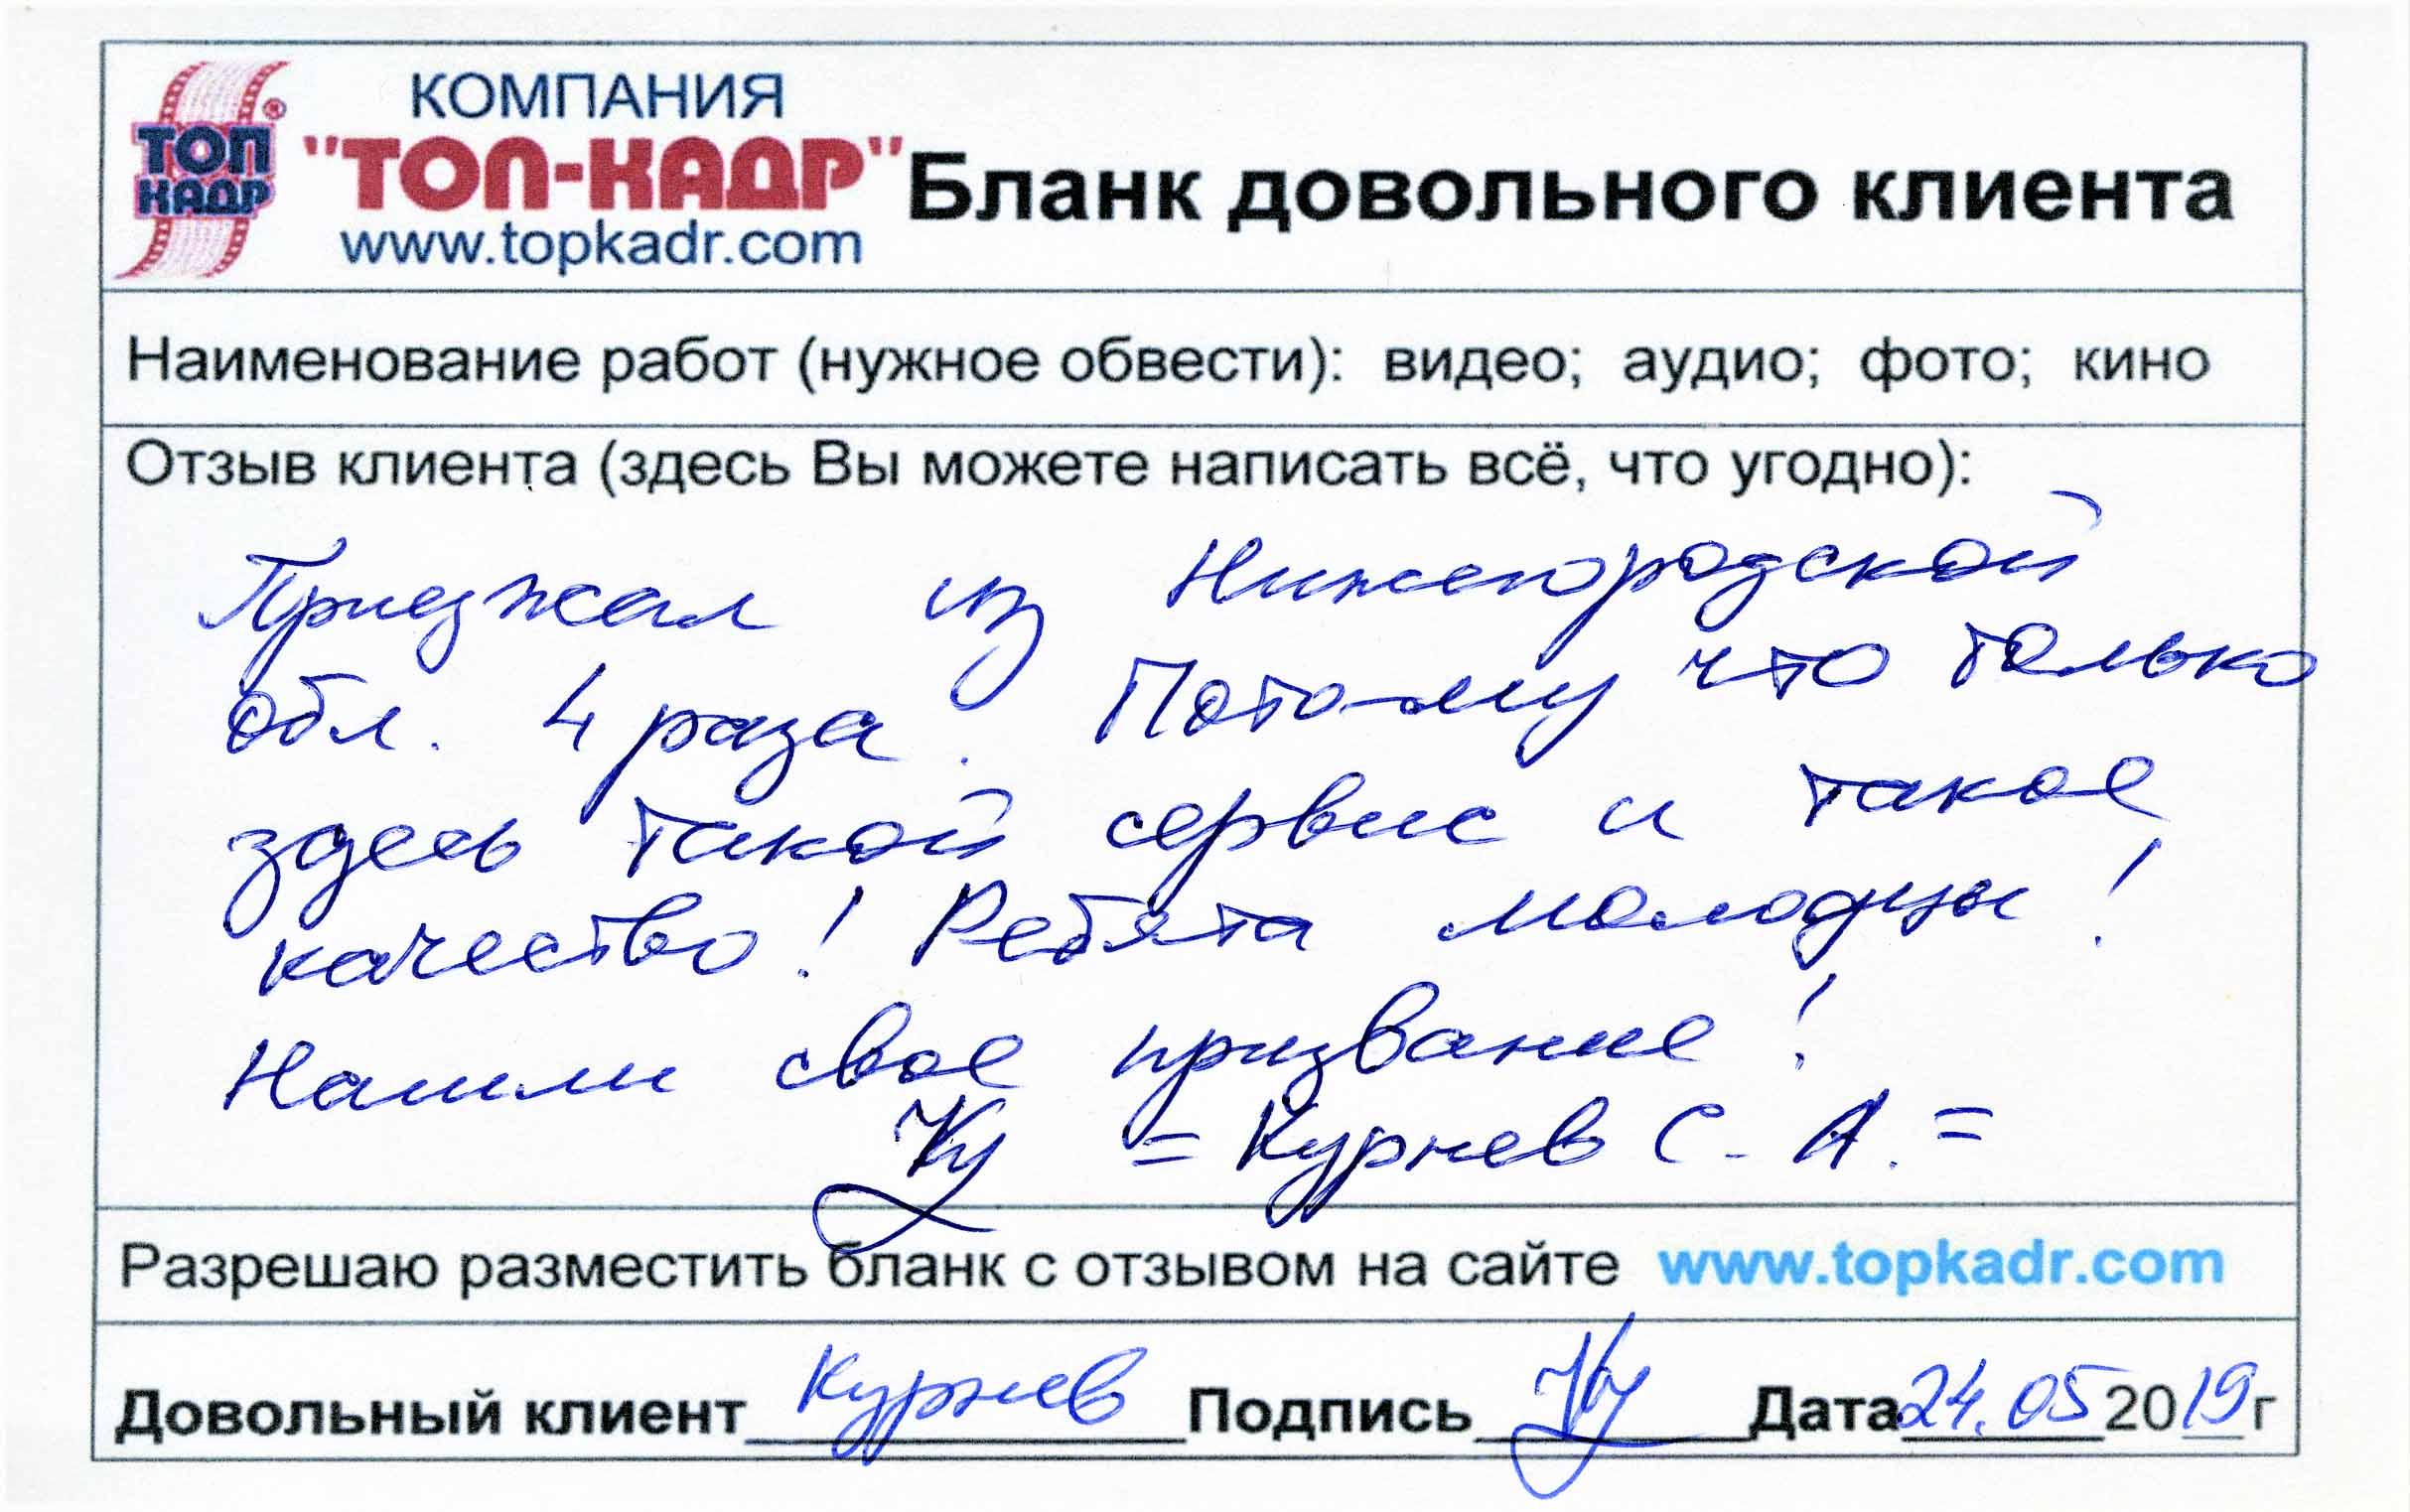 КОМПАНИЯ
ТОП КАДР ®
"ТОП-КАДР"
www.topkadr.com
Бланк довольного клиента
Наименование работ (нужное обвести): видео; аудио; фото; кино
Отзыв клиента (здесь Вы можете написать всё, что угодно):
Приезжал из Нижегородской
обл. 4 раза. Потому что только
здесь такой сервис и такое
качество! Ребята молодцы!
Нашли свое призвание!
= Курнев С. А. =
Разрешаю разместить бланк с отзывом на сайте www.topkadr.com
Довольный клиент Курнев Подпись Дата 24.05 2019 г